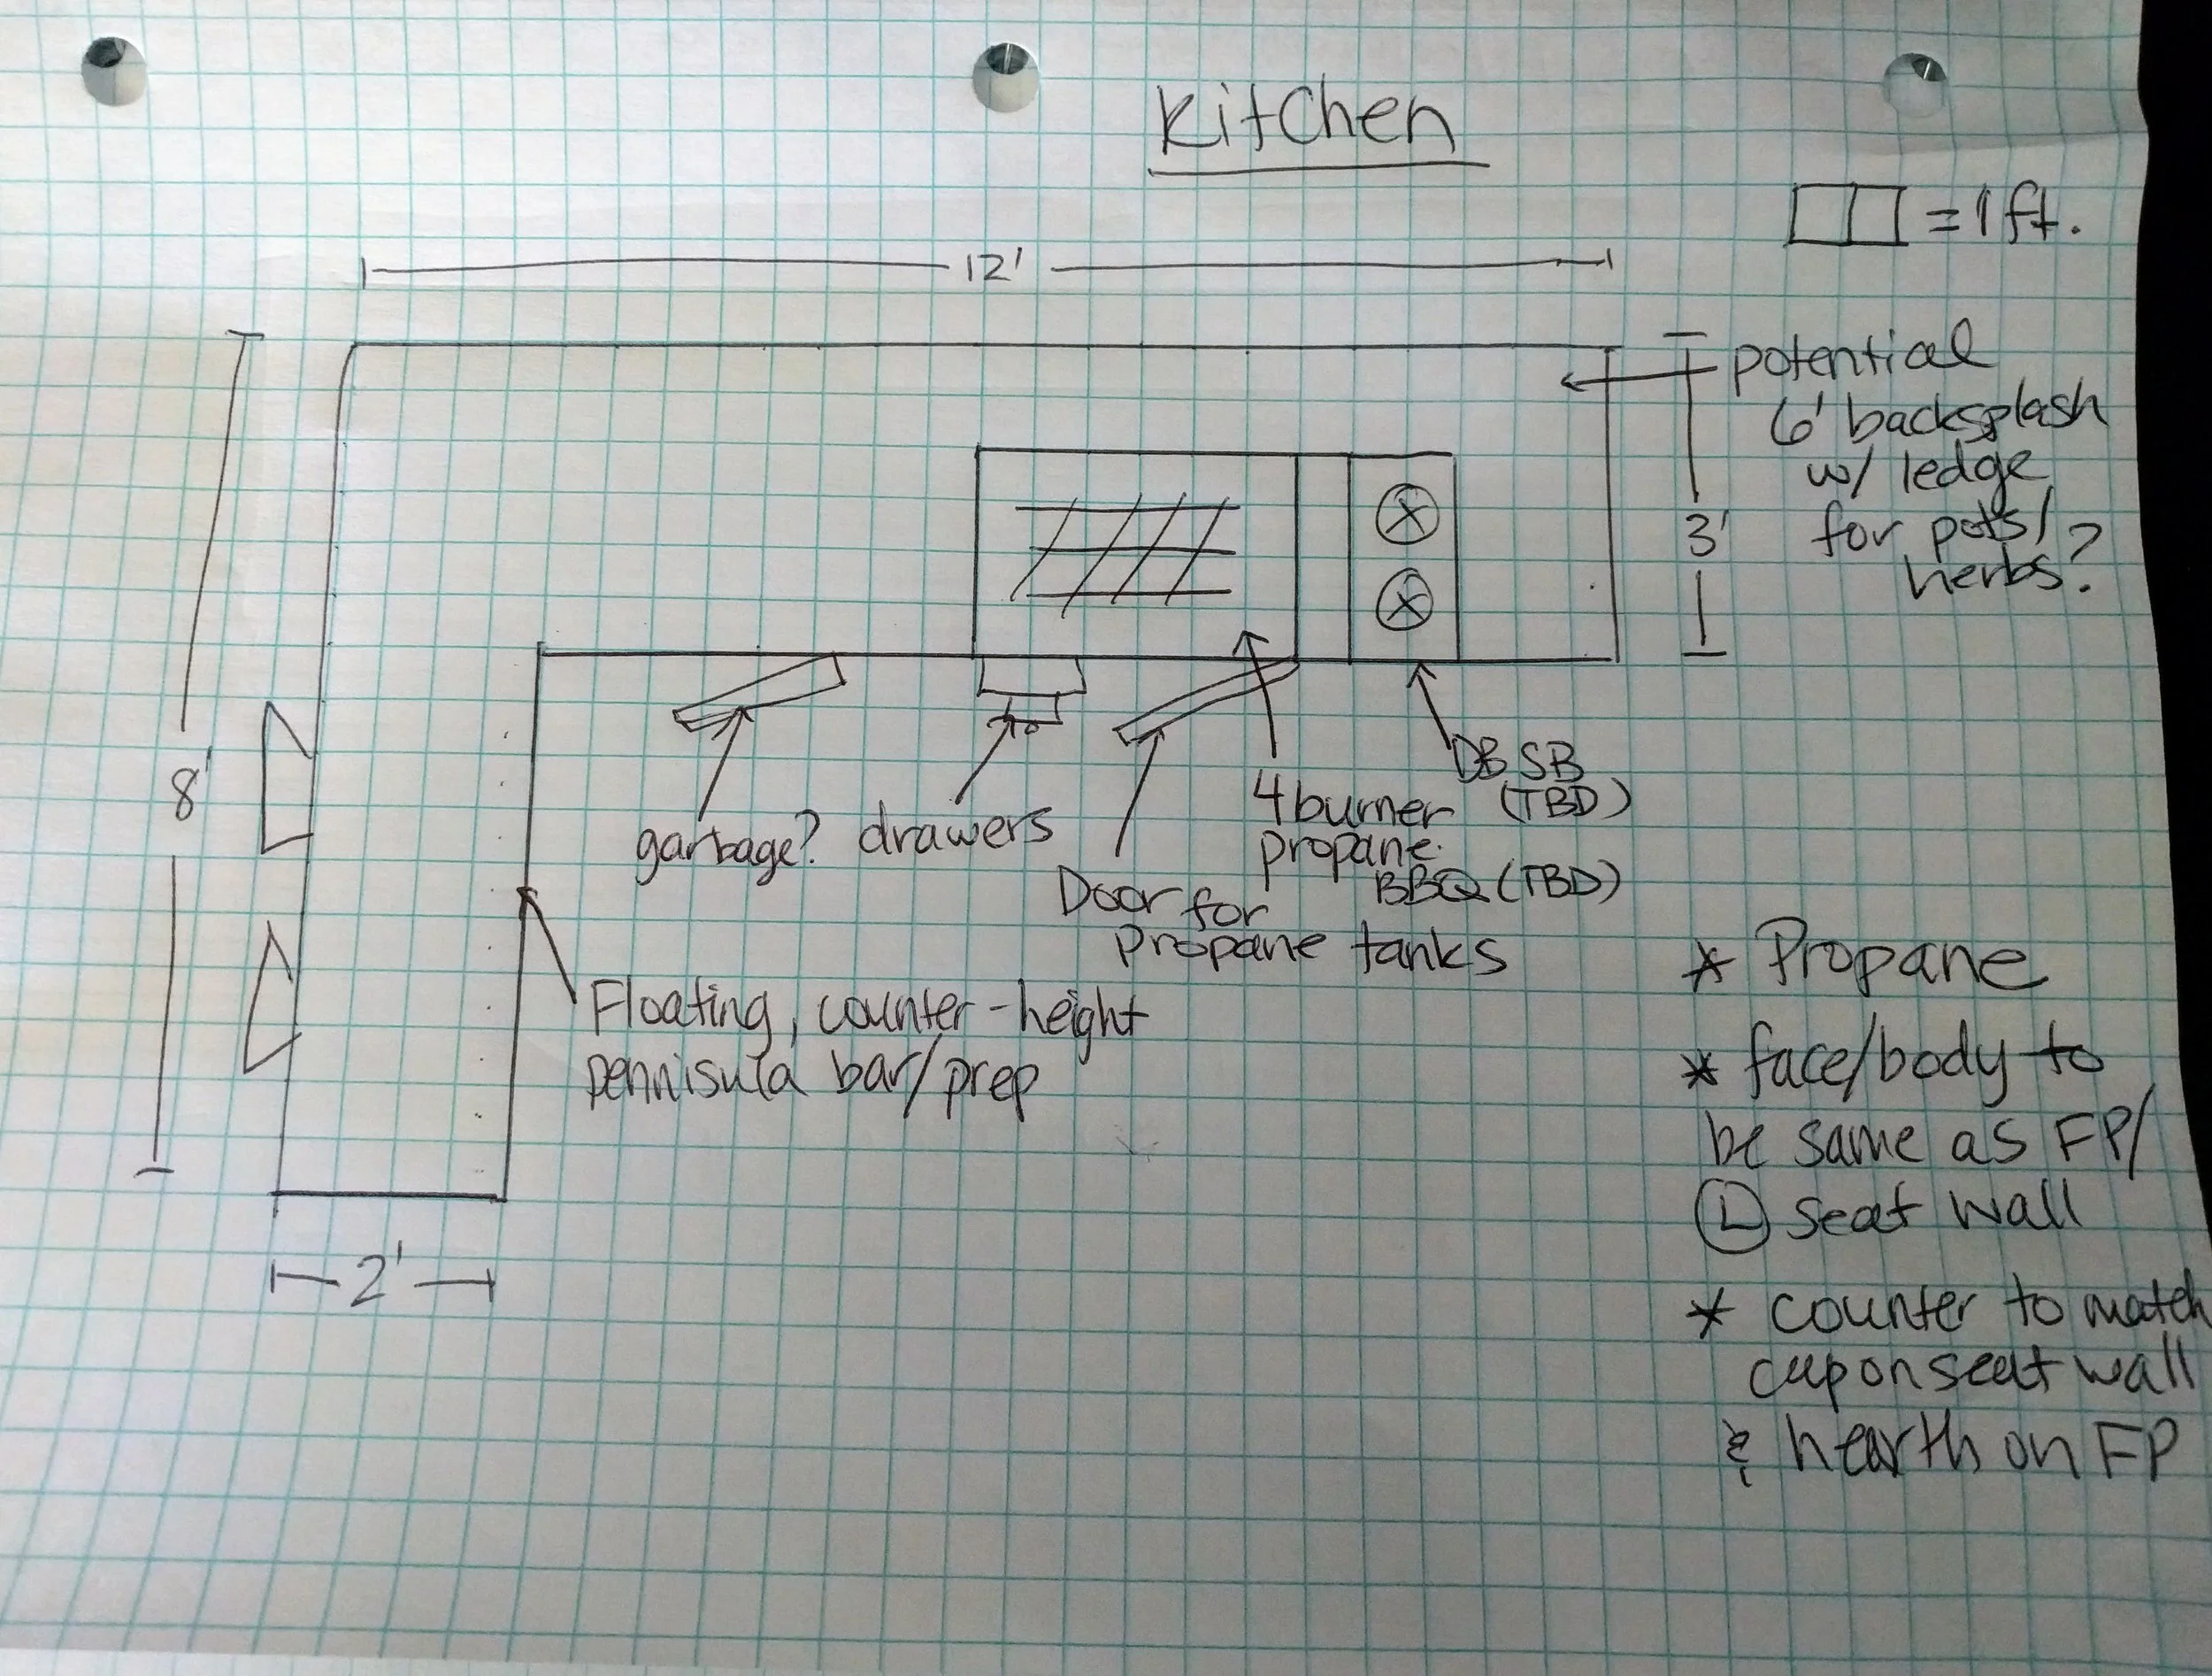 Kitchen
= 1 ft.
12'
potential
6' backsplash
w/ ledge
for pots/
herbs?
3'
8'
garbage?
drawers
Door for
Propane tanks
4 burner
propane
BBQ (TBD)
DB SB
(TBD)
Floating, counter-height
pennisula bar/prep
2'
* Propane
* face/body to
be same as FP/
L seat wall
* counter to match
cap on seat wall
& hearth on FP